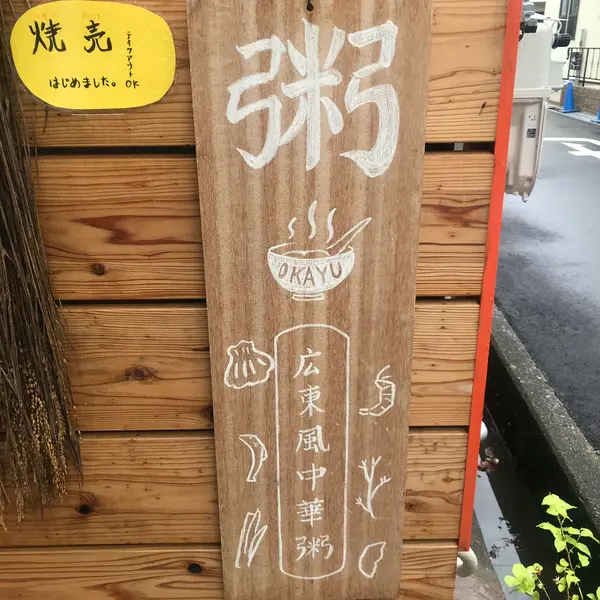 焼売
テイクアウト
OK
はじめました。
粥
OKAYU
広東風中華粥